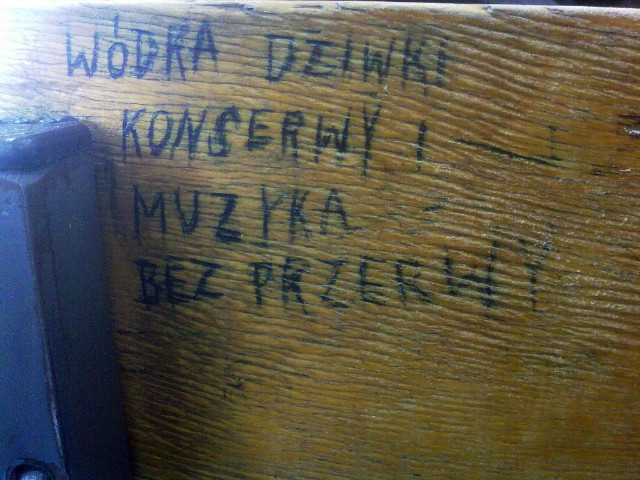 WÓDKA DZIWKI
KONSERWY I
MUZYKA
BEZ PRZERWY